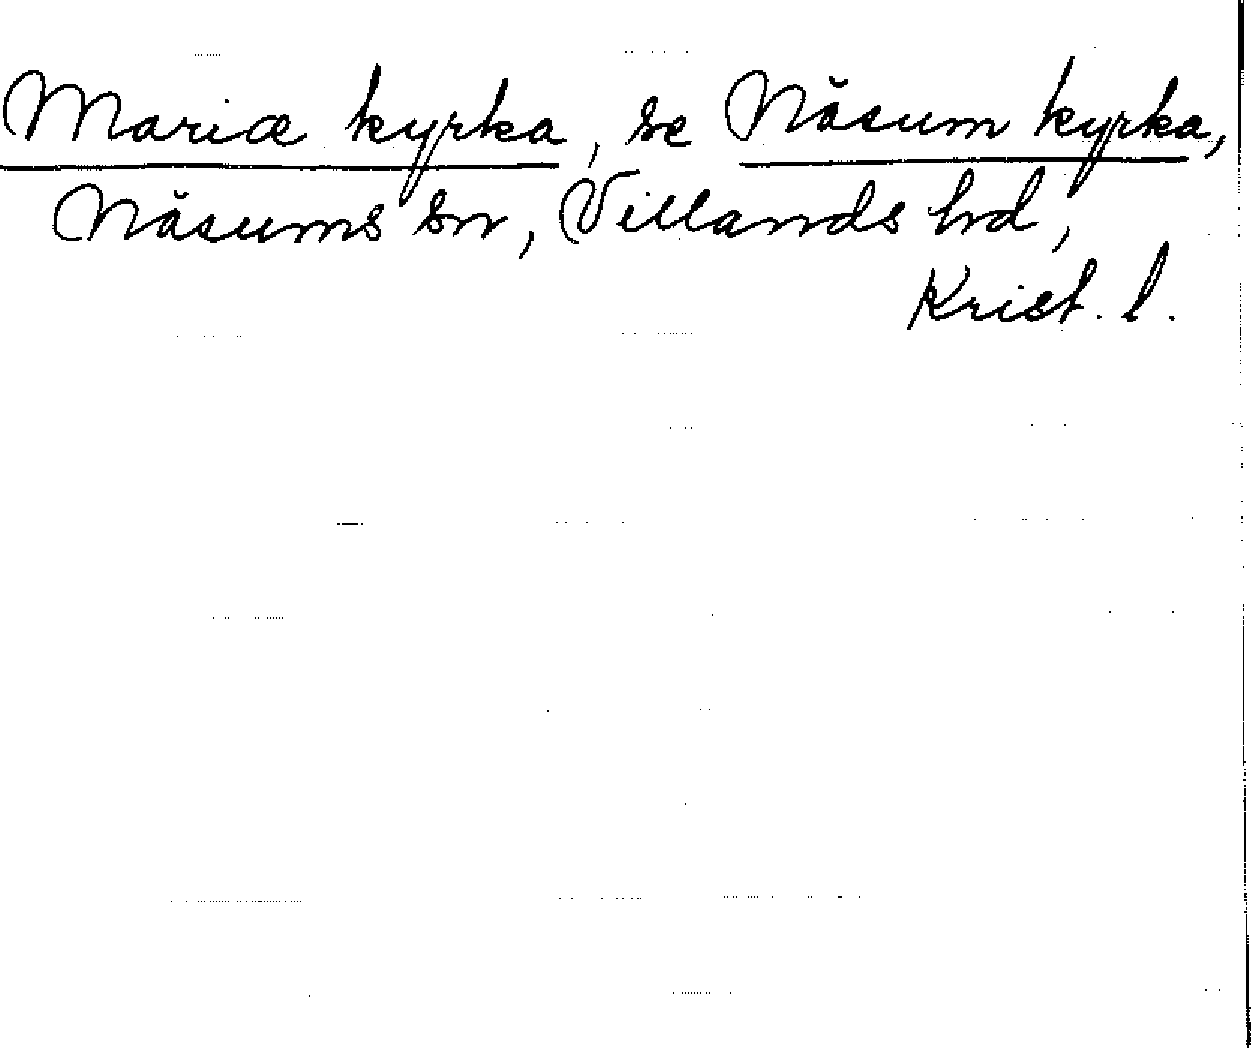 Mariæ kyrka, se Näsum kyrka,
Näsums sn, Villands hd,
Krist. l.